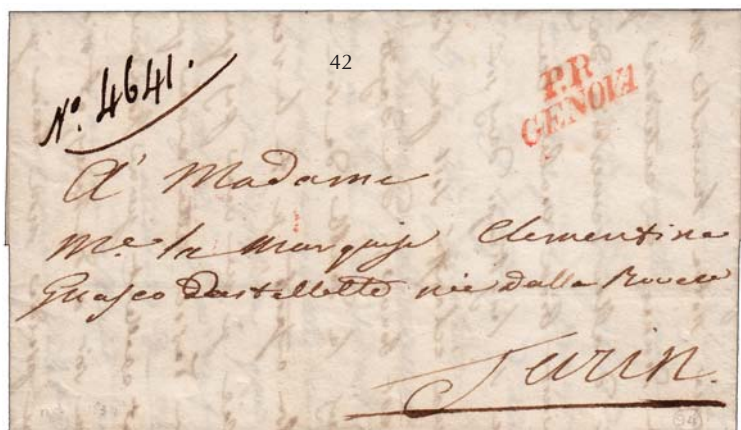 42
N.º 4641.
P.P.
GENOVA
A' Madame
M.e la Marquise Clementine
Guasco Dastellette née Dalla Rovere
Turin.
94